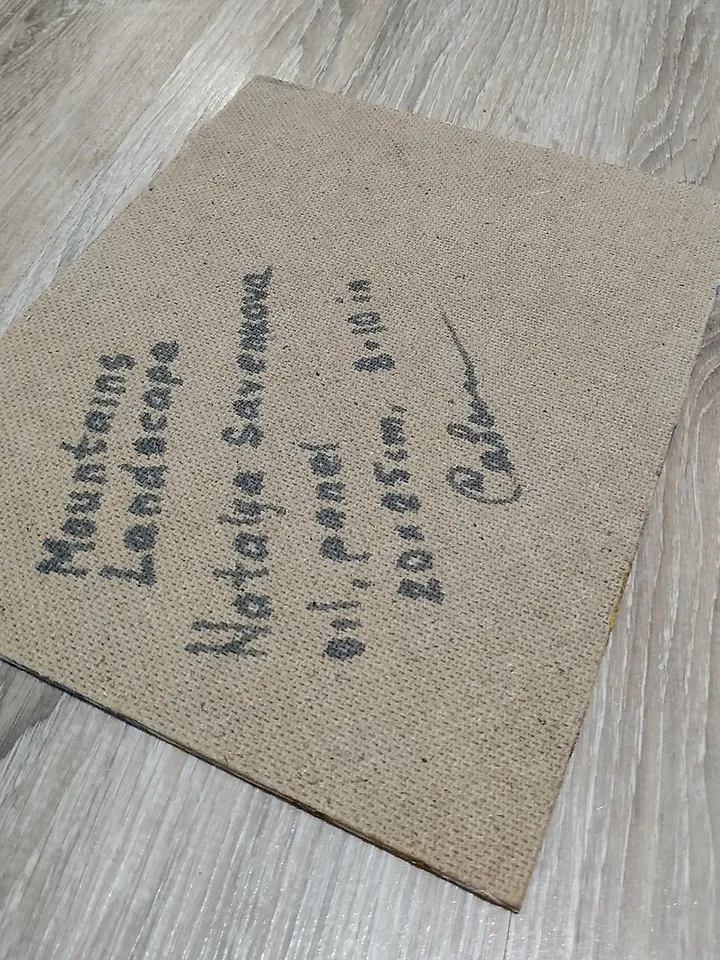 Mountains
Landscape
Natalya Savenkova
oil, panel
20×25cm, 8×10 in